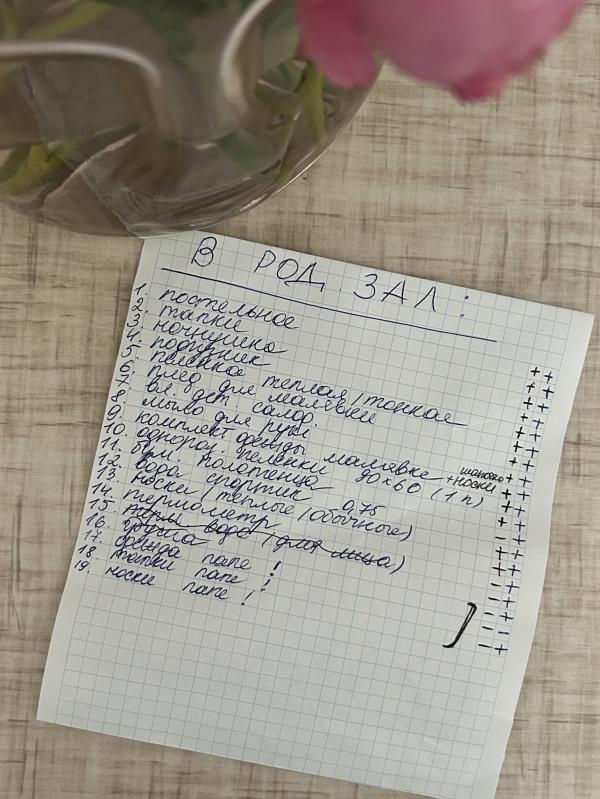 В РОД. ЗАЛ:
1. постельное
2. тапки
3. ночнушка
4. подгузник
5. пеленка теплая/тонкая
6. плед для малявки
7. вл. дет. салф.
8. мыло для рук
9. комплект одежды малявке + носки шапочка
10. одноразов. пеленки 90×60 (1 п)
11. бум. полотенца
12. вода спортик 0,75
13. носки (теплые/обычные)
14. термометр
15. терм. вода (для лица)
16.
17. одежда папе!
18. тапки папе!
19. носки папе!